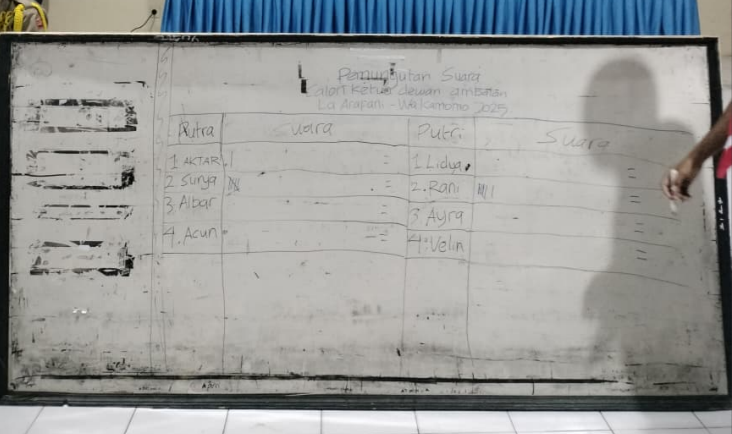 Pemungutan Suara
Calon Ketua dewan ambalan
La Arapani - Wa Kamomo 2025
Putra Suara Putri Suara
1 AKTAR | = 1. Lidya =
2 Surya = 2. Rani =
3. Albar = 3. Ayra =
4. Acun = 4. Velin =